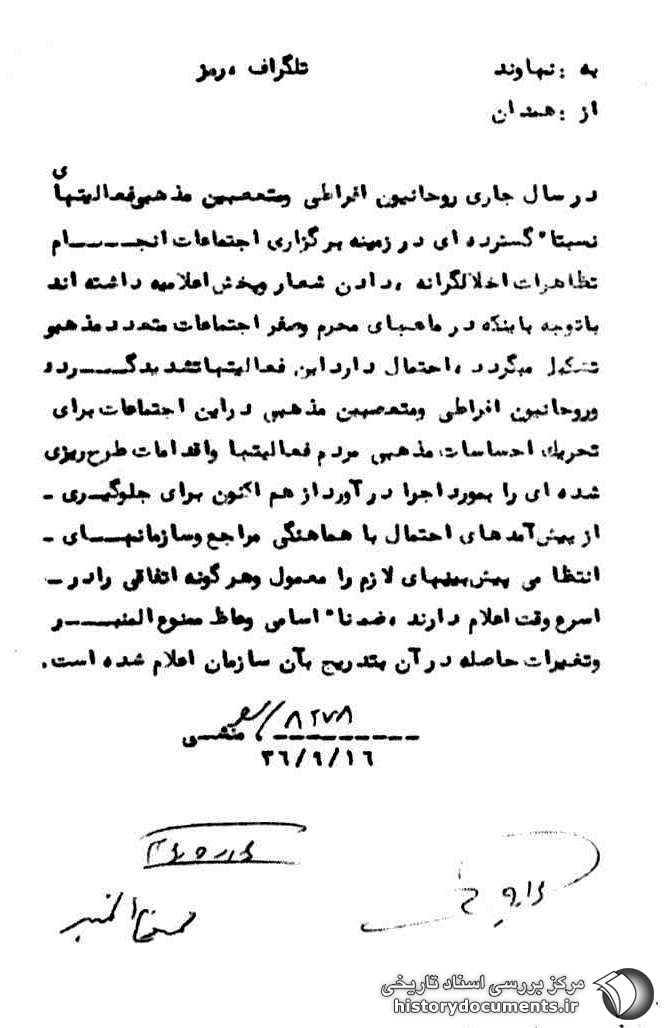 به : نهاوند
تلگراف ، رمز
از : همدان
در سال جاری روحانیون افراطی ومتعصبین مذهبی فعالیتهای
نسبتا" گسترده ای در زمینه برگزاری اجتماعات انجـــــام
تظاهرات اخلالگرانه ، دادن شعار وپخش اعلامیه داشته اند
باتوجه باینکه در ماههای محرم وصفر اجتماعات متعدد مذهبی
تشکیل میگردد ، احتمال دارد این فعالیتها تشدید گـــردد
وروحانیون افراطی ومتعصبین مذهبی دراین اجتماعات برای
تحریک احساسات مذهبی مردم فعالیتها واقدامات طرح ریزی
شده ای را بمورد اجرا درآورد از هم اکنون برای جلوگیــری -
از پیش آمدهای احتمال با هماهنگی مراجع وسازمانهـــای -
انتظا می پیش بینیهای لازم را معمول وهرگونه اتفاقی رادر -
اسرع وقت اعلام دارند ، ضمنا" اسامی وعاظ ممنوع المنبـــر
وتغییرات حاصله درآن بتدریج بآن سازمان اعلام شده است.
۸۲۷۸/
منشــی
۳۶/۹/۱۶
ممنوع المنبر
مرکز بررسی اسناد تاریخی
historydocuments.ir